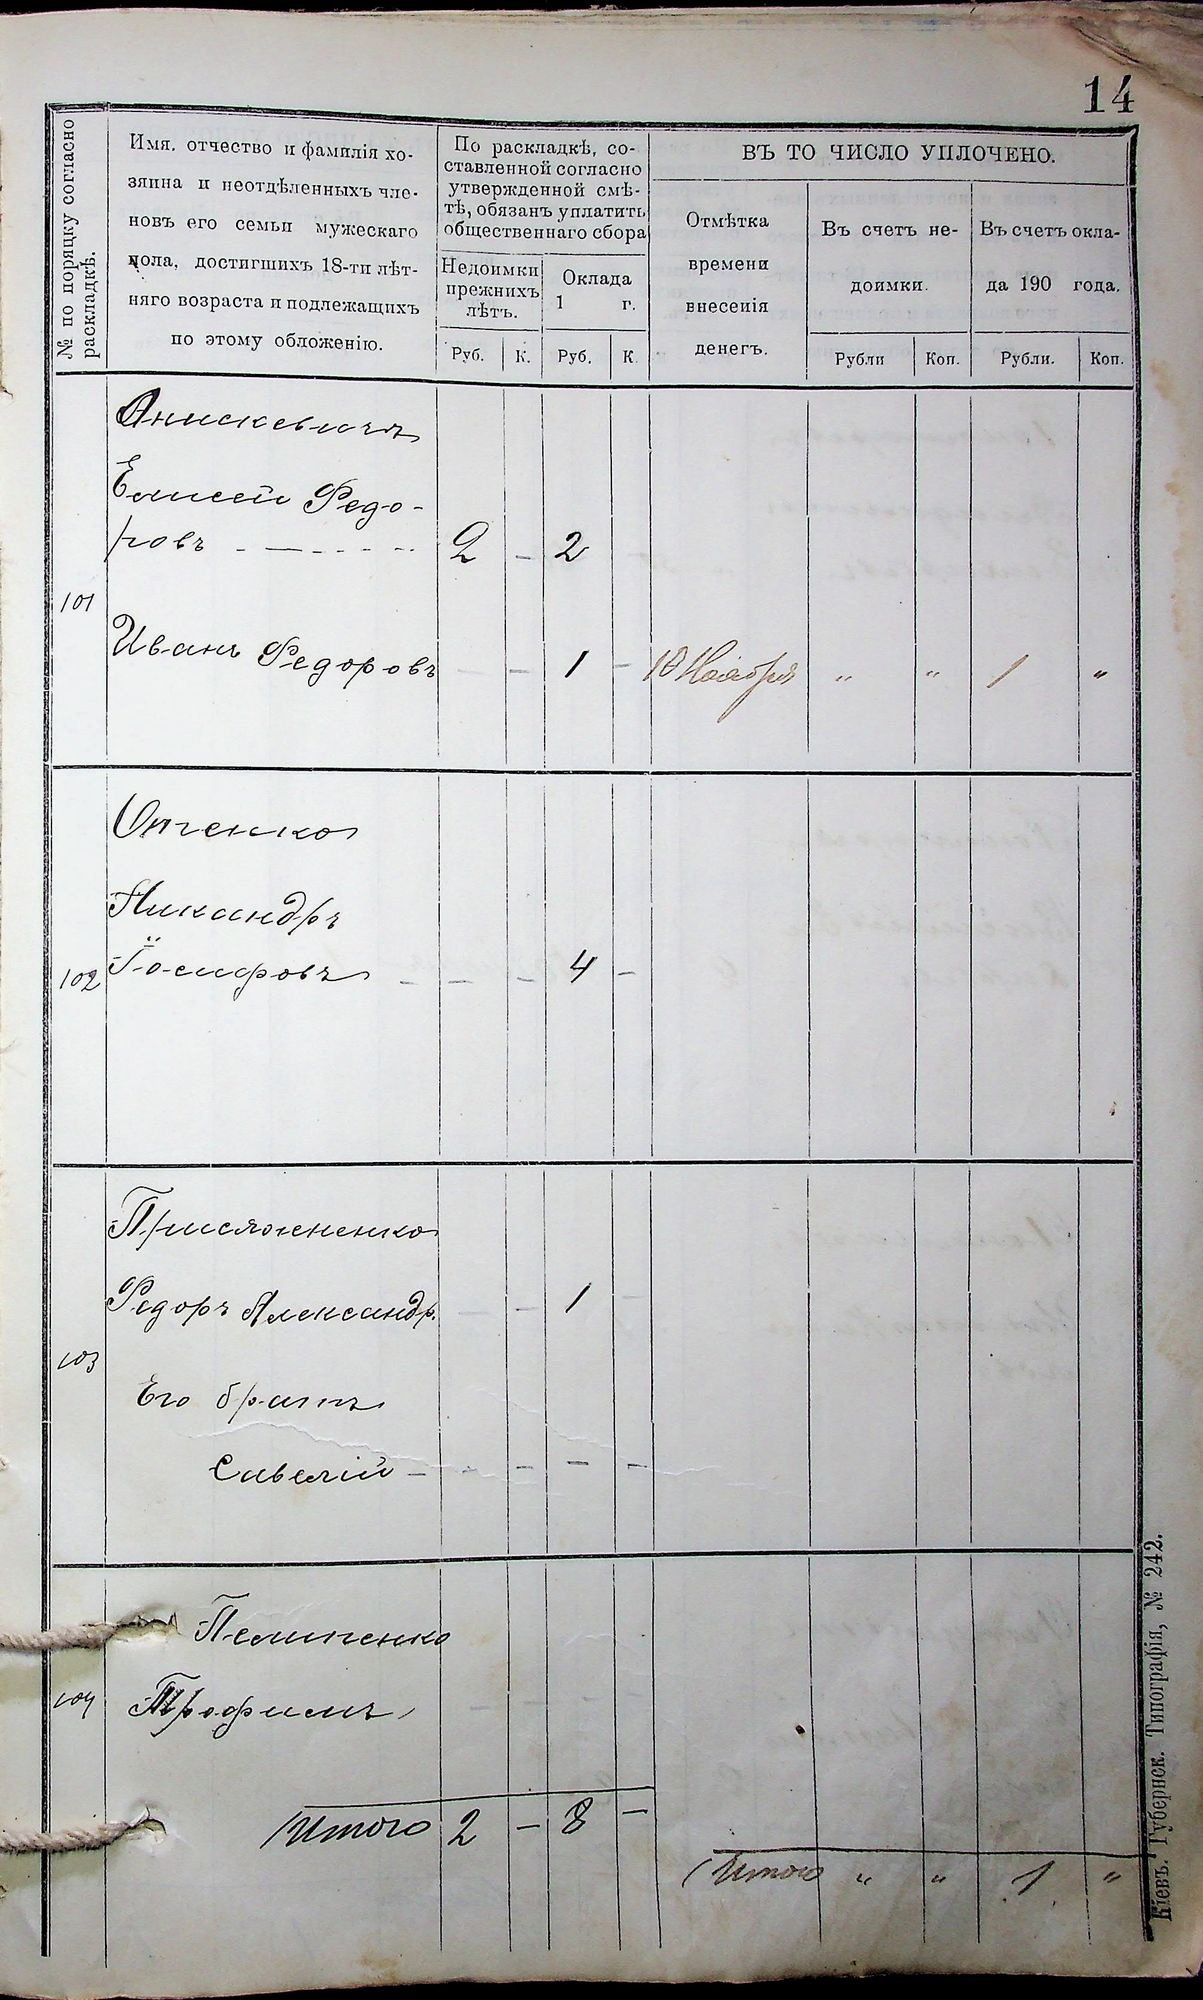 14
№ по порядку согласно
раскладкѣ.
Имя, отчество и фамилія хо-
зяина и неотдѣленныхъ чле-
новъ его семьи мужескаго
пола, достигшихъ 18-ти лѣт-
няго возраста и подлежащихъ
по этому обложенію.
По раскладкѣ, со-
ставленной согласно
утвержденной смѣ-
тѣ, обязанъ уплатить
общественнаго сбора
Недоимки
прежнихъ
лѣтъ.
Оклада
1 г.
Руб. К. Руб. К.
ВЪ ТО ЧИСЛО УПЛОЧЕНО.
Отмѣтка
времени
внесенія
денегъ.
Въ счетъ не-
доимки.
Въ счетъ окла-
да 190 года.
Рубли Коп. Рубли. Коп.
Анискевичъ
Елисей Федо-
ровъ - — - - - - 2 - 2
101
Иванъ Федоровъ - - 1 - 18 Ноября " " 1 "
Отченко
Никандръ
102 Іосифовъ - - - 4 -
Присяжненко
Федоръ Александр. - - 1 -
103
Его братъ
Савелій - - - - -
Пелипенко
104 Трофимъ
Итого 2 - 8 -
Итого " " 1 "
Кіевъ. Губернск. Типографія, № 242.